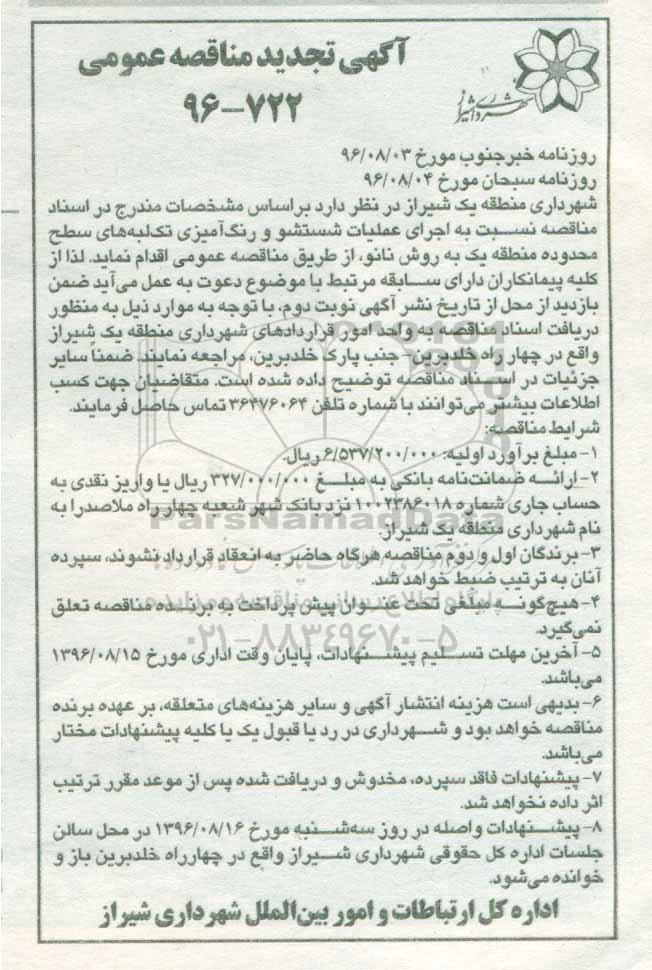 آگهی تجدید مناقصه عمومی
۹۶-۷۲۲
شهرداری شیراز
روزنامه خبرجنوب مورخ ۹۶/۰۸/۰۳
روزنامه سبحان مورخ ۹۶/۰۸/۰۴
شهرداری منطقه یک شیراز در نظر دارد براساس مشخصات مندرج در اسناد
مناقصه نسبت به اجرای عملیات شستشو و رنگ‌آمیزی تک‌لبه‌های سطح
محدوده منطقه یک به روش نانو، از طریق مناقصه عمومی اقدام نماید. لذا از
کلیه پیمانکاران دارای سابقه مرتبط با موضوع دعوت به عمل می‌آید ضمن
بازدید از محل از تاریخ نشر آگهی نوبت دوم، با توجه به موارد ذیل به منظور
دریافت اسناد مناقصه به واحد امور قراردادهای شهرداری منطقه یک شیراز
واقع در چهارراه خلدبرین- جنب پارک خلدبرین، مراجعه نمایند. ضمناً سایر
جزئیات در اسناد مناقصه توضیح داده شده است. متقاضیان جهت کسب
اطلاعات بیشتر می‌توانند با شماره تلفن ۳۶۴۷۶۰۶۴ تماس حاصل فرمایند.
شرایط مناقصه:
۱- مبلغ برآورد اولیه: ۶/۵۳۷/۲۰۰/۰۰۰ ریال.
۲- ارائه ضمانت‌نامه بانکی به مبلغ ۳۲۷/۰۰۰/۰۰۰ ریال یا واریز نقدی به
حساب جاری شماره ۱۰۰۲۳۸۶۰۱۸ نزد بانک شهر شعبه چهارراه ملاصدرا به
نام شهرداری منطقه یک شیراز.
۳- برندگان اول و دوم مناقصه هرگاه حاضر به انعقاد قرارداد نشوند، سپرده
آنان به ترتیب ضبط خواهد شد.
۴- هیچ‌گونه مبلغی تحت عنوان پیش پرداخت به برنده مناقصه تعلق
نمی‌گیرد.
۵- آخرین مهلت تسلیم پیشنهادات، پایان وقت اداری مورخ ۱۳۹۶/۰۸/۱۵
می‌باشد.
۶- بدیهی است هزینه انتشار آگهی و سایر هزینه‌های متعلقه، بر عهده برنده
مناقصه خواهد بود و شهرداری در رد یا قبول یک یا کلیه پیشنهادات مختار
می‌باشد.
۷- پیشنهادات فاقد سپرده، مخدوش و دریافت شده پس از موعد مقرر ترتیب
اثر داده نخواهد شد.
۸- پیشنهادات واصله در روز سه‌شنبه مورخ ۱۳۹۶/۰۸/۱۶ در محل سالن
جلسات اداره کل حقوقی شهرداری شیراز واقع در چهارراه خلدبرین باز و
خوانده می‌شود.
اداره کل ارتباطات و امور بین‌الملل شهرداری شیراز
ParsNamadData
پایگاه اطلاع رسانی مناقصه و مزایده
۰۲۱-۸۸۳۴۹۶۷۰-۵